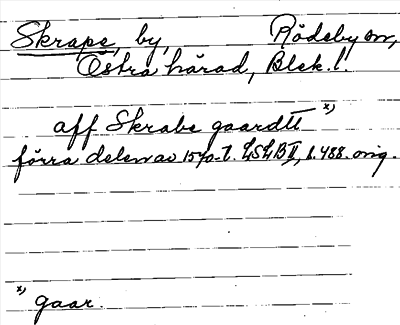 Skrape, by, Rödeby sn,
Östra härad, Blek. l.
aff Skrabe gaardtt x)
förra delen av 1540-t. LSLB II, s. 488. orig.
x) gaar.